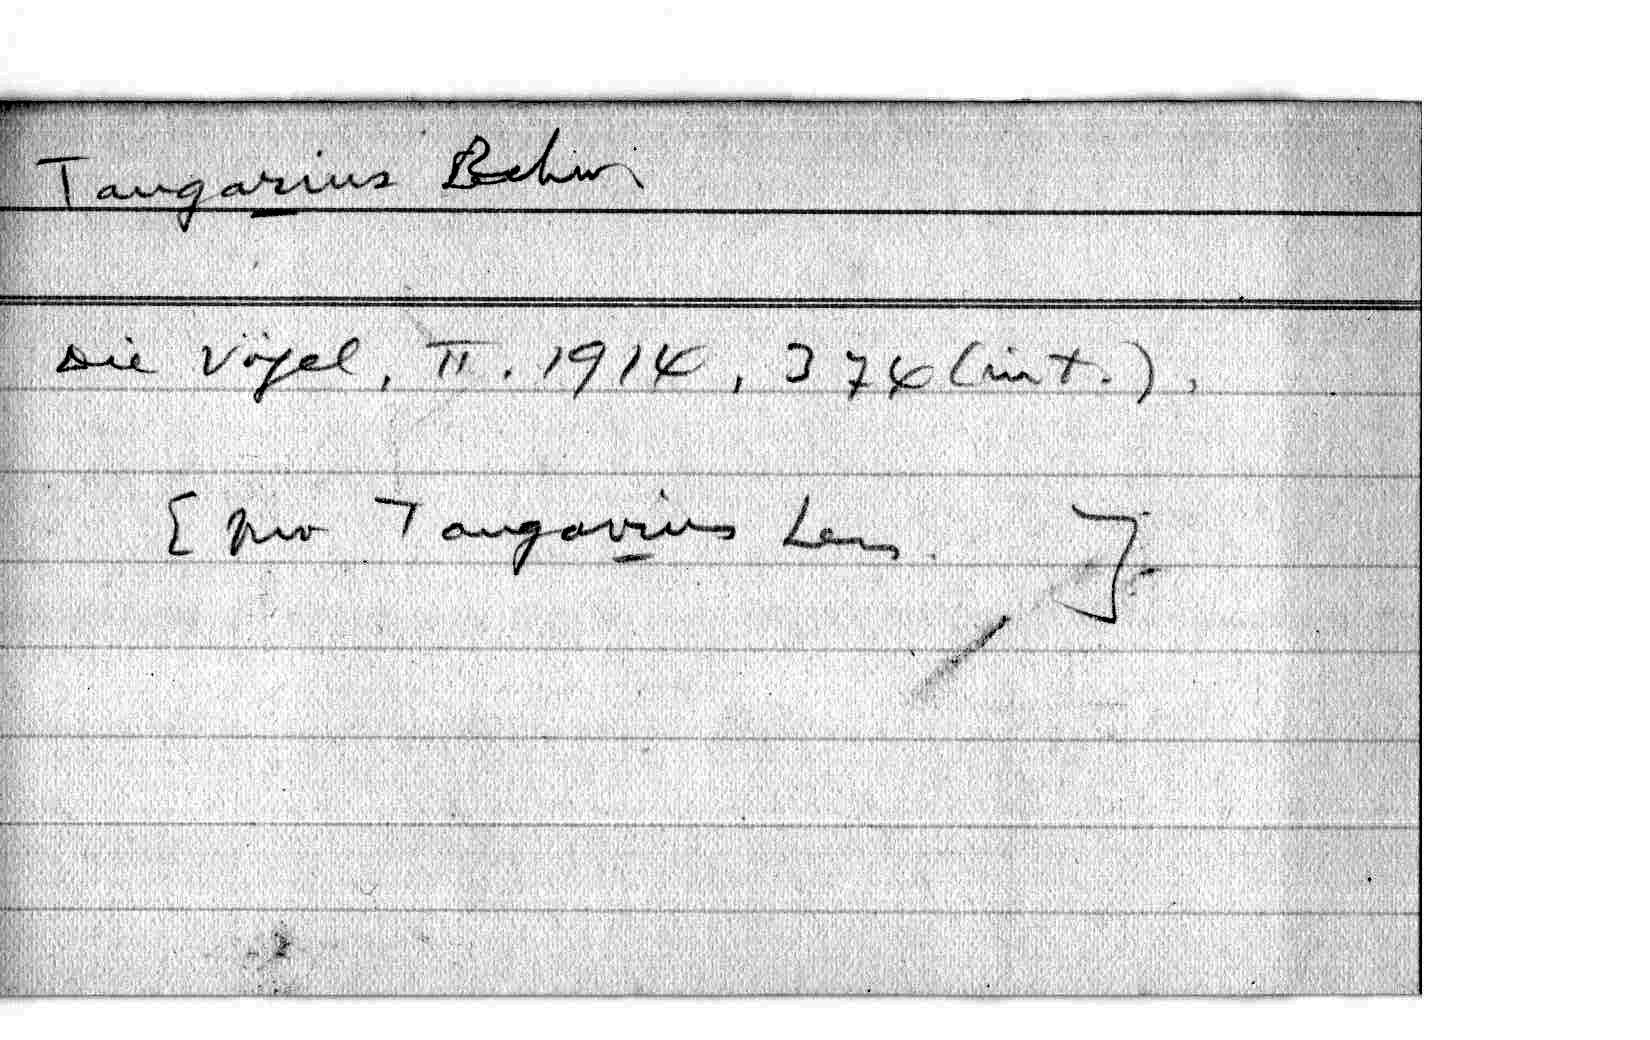 Tangarius Rchw.
Die Vögel, II. 1914, 374 (in t.),
[pro Tangavius Less. ].